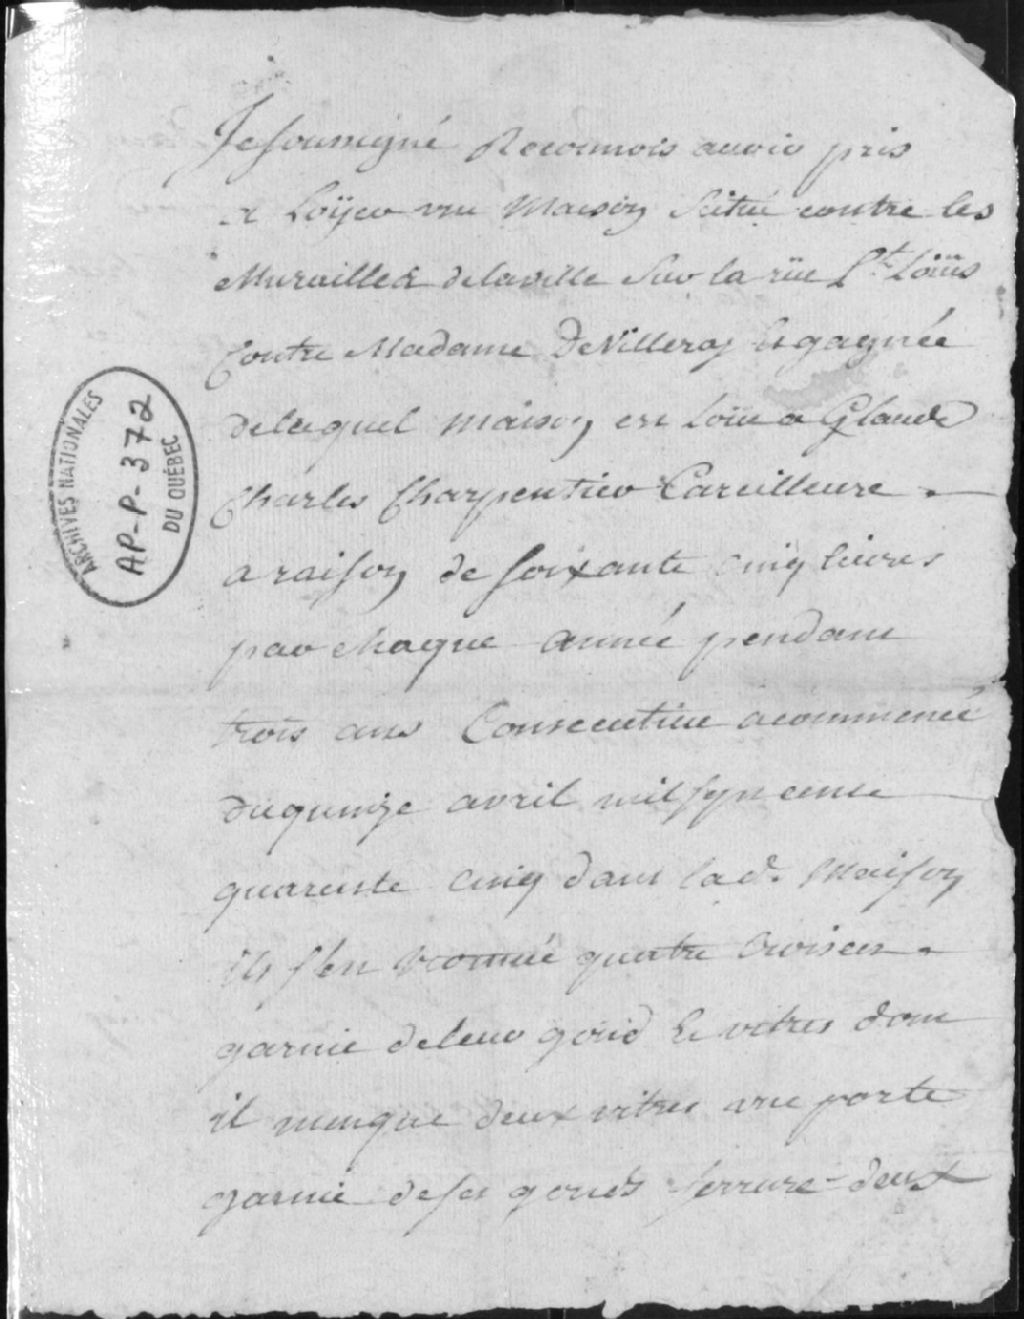 Je soussigné Reconnois avoir pris
a Loÿer une Maison scitué contre les
Murailles de la ville sur la rüe St. Loüis
Contre Madame DeVilleray
de laquel maison est Loüe a Glaude
Charles Charpentier
a raison de soixante cinq livres
par chaque année pendant
trois ans Consecutive a commencé
du quinze avril mil sept cents
quarente cinq dans lad. Maison
il s'en trouvé quatre Croisees
garnie de leur gond Et vitres dont
il manque deux vitres une porte
garnie de ses gonds serrure deux
ARCHIVES NATIONALES
AP-P-372
DU QUÉBEC